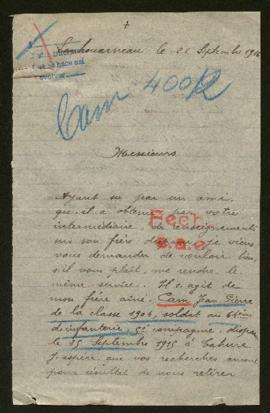 +
le 21 Septembre 1916
Cam 400R
Messieurs
Ayant su par un ami
qu'il a obtenu par votre
intermédiaire des renseignements
sur son frère je viens
vous demander de vouloir bien
s'il vous plaît, me rendre le
même service. Il s'agit de
mon frère aîné. Cam Jean Pierre
de la classe 1904, soldat au
d'infanterie, 5e compagnie, disparu
le 25 Septembre 1915 à Tahure
J'espère que vos recherches auront
pour résultat de nous retirer